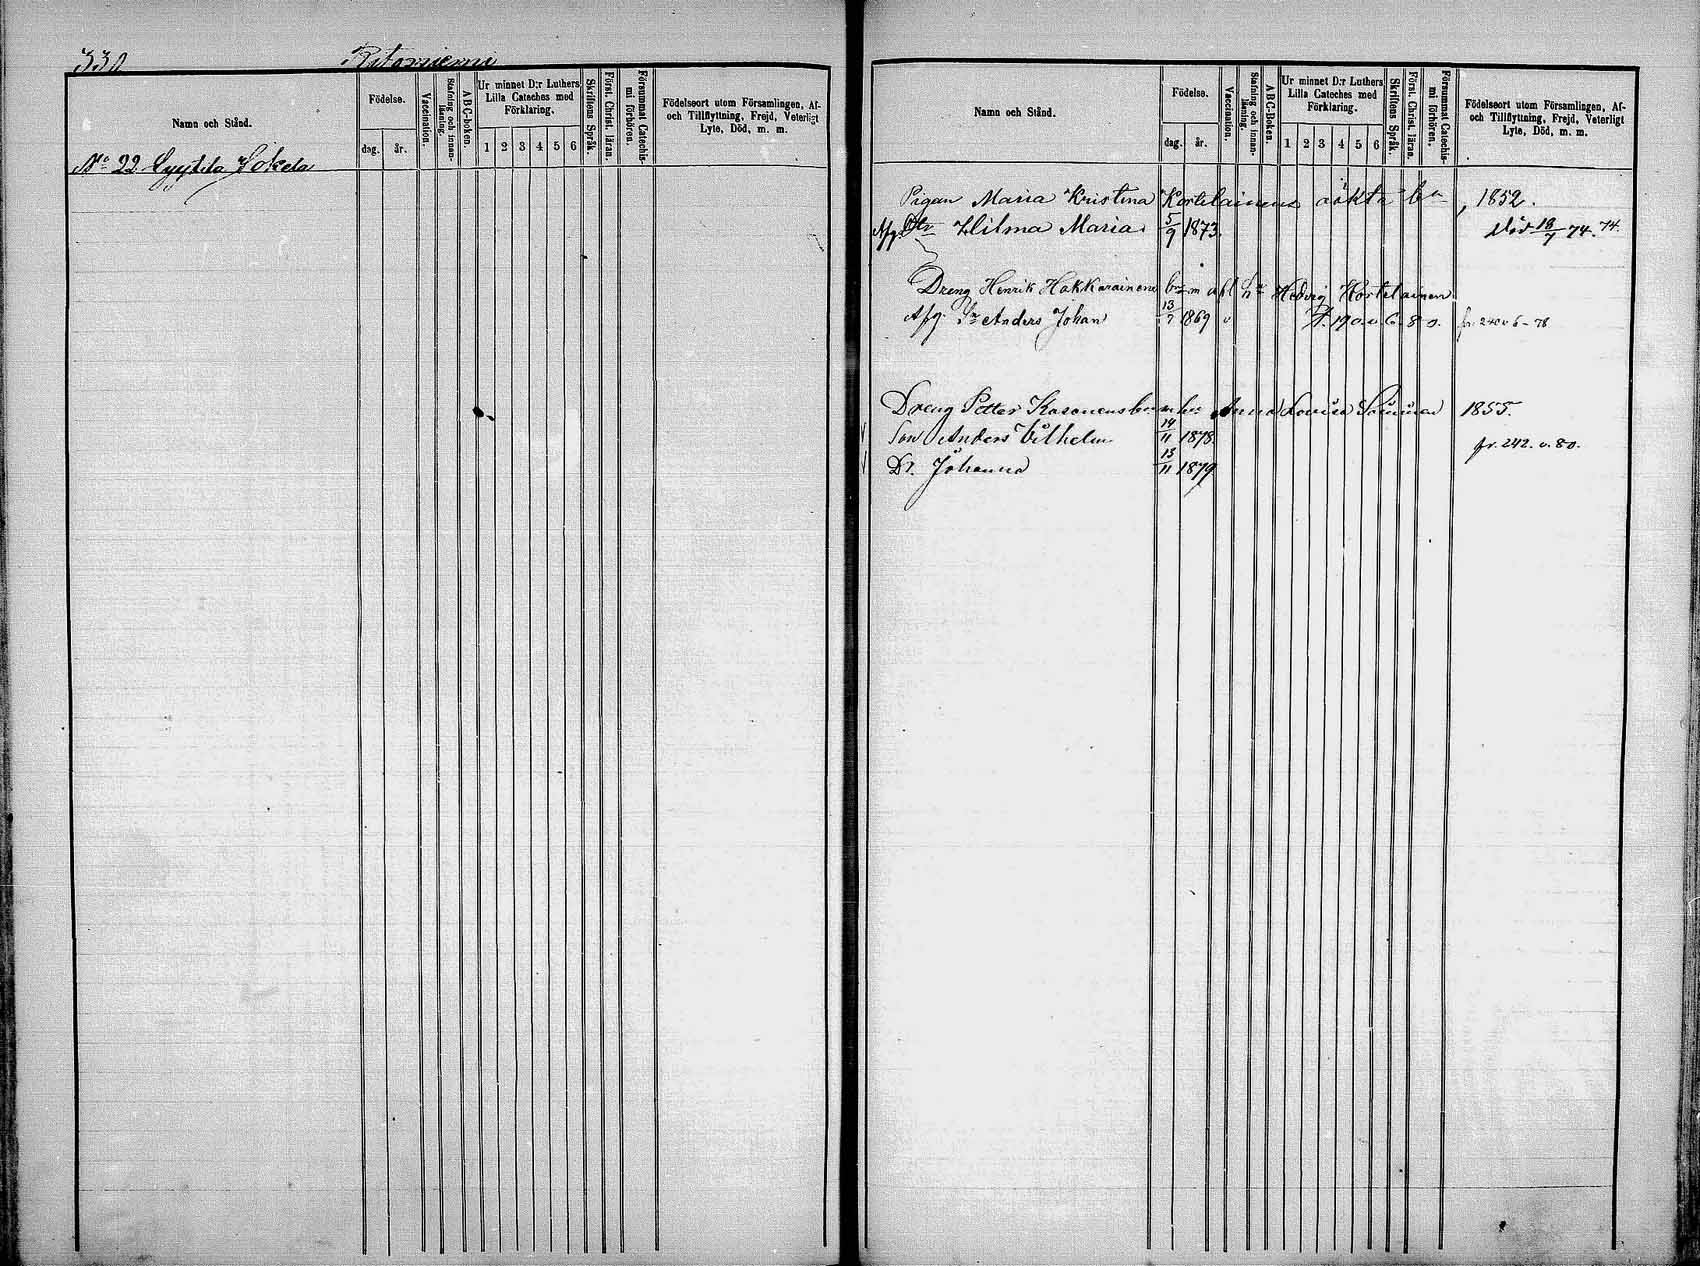 330
Namn och Stånd.
Födelse.
dag.
år.
Vaccination.
Stafning och innan-
läsning.
ABC-boken.
Ur minnet D:r Luthers
Lilla Cateches med
Förklaring.
1 2 3 4 5 6
Skriftens Språk.
Först. Christ. läran.
Försummat Catechis-
mi förhören.
Födelseort utom Församlingen, Af-
och Tillflyttning, Frejd, Veterligt
Lyte, Död, m. m.
No 22
Namn och Stånd.
Födelse.
dag.
år.
Vaccination.
Stafning och innan-
läsning.
ABC-Boken.
Ur minnet D:r Luthers
Lilla Cateches med
Förklaring.
1 2 3 4 5 6
Skriftens Språk.
Först. Christ. läran.
Försummat Catechis-
mi förhören.
Födelseort utom Församlingen, Af-
och Tillflyttning, Frejd, Veterligt
Lyte, Död, m. m.
Pigan Maria Kristina Kortelainens oäkta bn, 1852.
Afg. Dtr Hilma Maria. 5/9 1873. död 18/7 74. 74.
Dreng Henrik Hakkarainens Hedvig Kortelainen
Afg. Sn Anders Johan 13/7 1869 v fr. 240 v 6-78
Dreng Petter Kasonens Anna Lovisa 1855.
Son Anders Vilhelm 14/11 1878. fr. 242. v. 80.
Dr. Johanna 13/11 1879